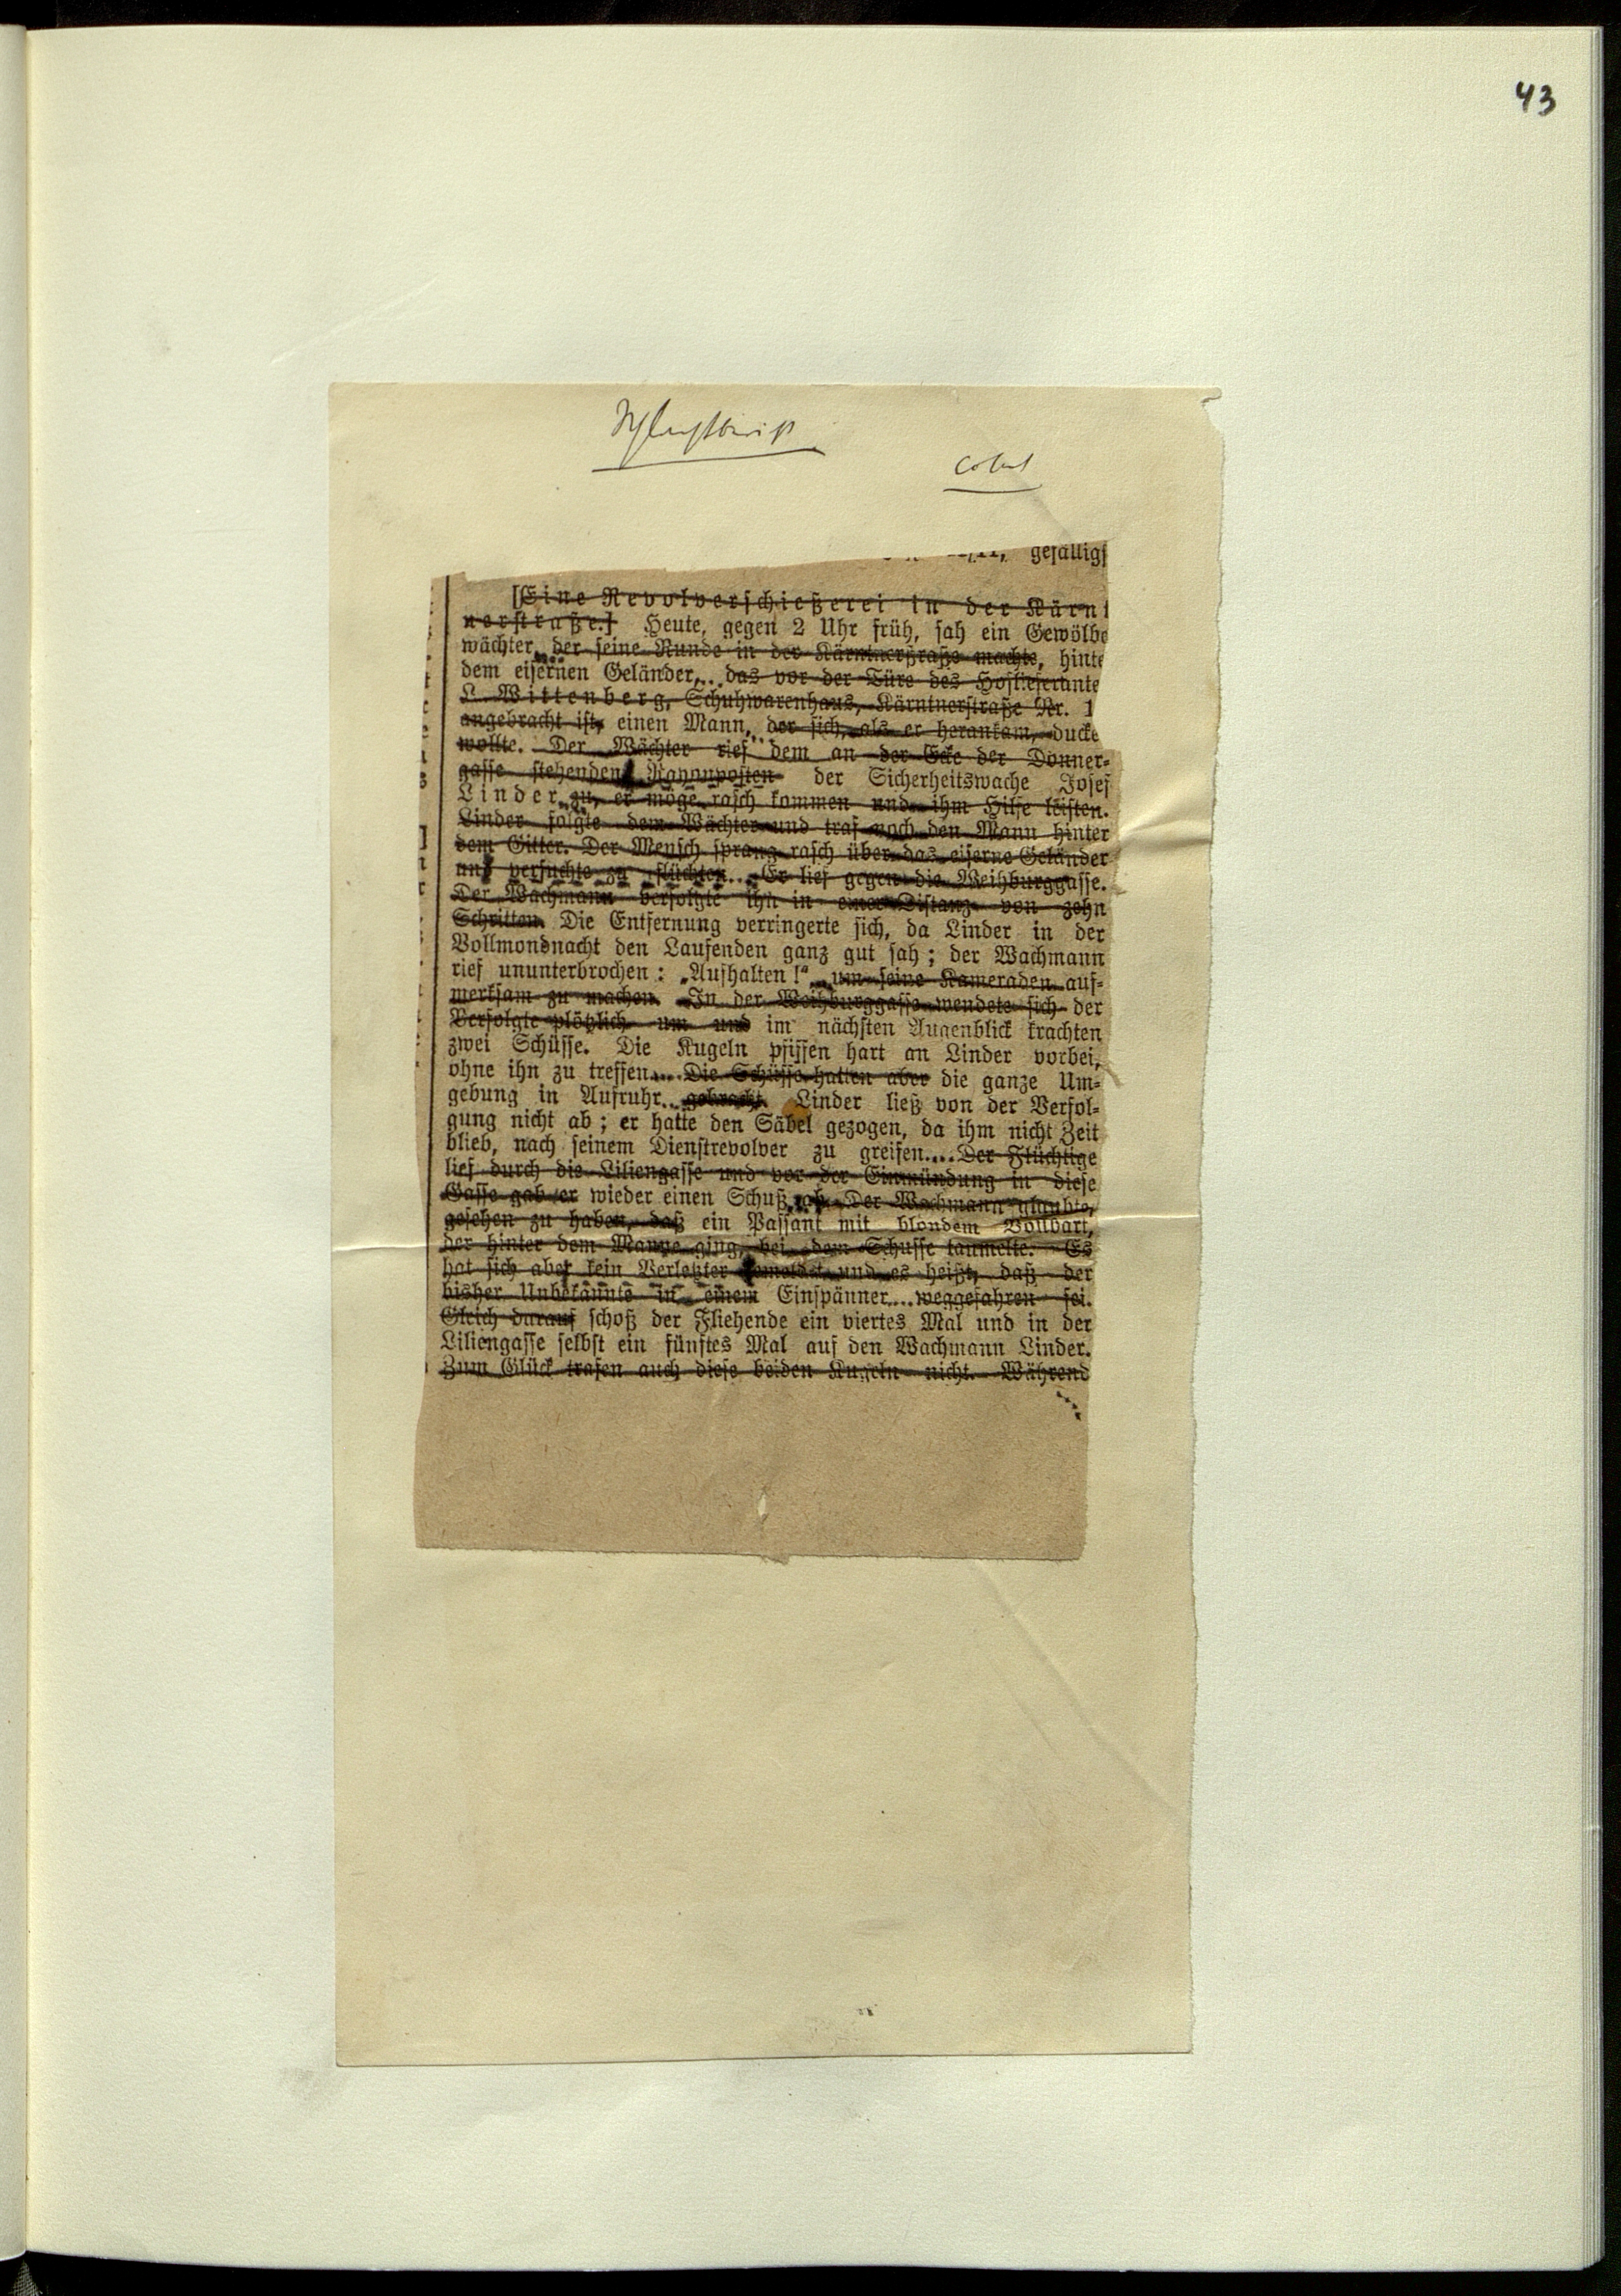 43
gefällig
[Eine Revolverschießerei in der Kärn
nerstraße.] Heute, gegen 2 Uhr früh, sah ein Gewölbe
wächter, der seine Runde in der Kärntnerstraße machte, hinte
dem eisernen Geländer, das vor der Türe des Hoflieferante
L. Wittenberg, Schuhwarenhaus, Kärntnerstraße Nr. 1
angebracht ist, einen Mann, der sich, als er herankam, ducke
wollte. Der Wächter rief dem an der Ecke der Donner-
gasse stehenden Rayonposten der Sicherheitswache Josef
Linder zu, er möge rasch kommen und ihm Hilfe leisten.
Linder folgte dem Wächter und traf noch den Mann hinter
dem Gitter. Der Mensch sprang rasch über das eiserne Geländer
und versuchte zu flüchten... Er lief gegen die Weihburggasse.
Der Wachmann verfolgte ihn in einer Distanz von zehn
Schritten. Die Entfernung verringerte sich, da Linder in der
Vollmondnacht den Laufenden ganz gut sah; der Wachmann
rief ununterbrochen: „Aufhalten!“ um seine Kameraden auf-
merksam zu machen. In der Weihburggasse wendete sich der
Verfolgte plötzlich um und im nächsten Augenblick krachten
zwei Schüsse. Die Kugeln pfiffen hart an Linder vorbei,
ohne ihn zu treffen.... Die Schüsse hatten aber die ganze Um-
gebung in Aufruhr... gebracht. Linder ließ von der Verfol-
gung nicht ab; er hatte den Säbel gezogen, da ihm nicht Zeit
blieb, nach seinem Dienstrevolver zu greifen.... Der Flüchtige
lief durch die Liliengasse und vor der Einmündung in diese
Gasse gab er wieder einen Schuß ab. Der Wachmann glaubte,
gesehen zu haben, daß ein Passant mit blondem Vollbart,
der hinter dem Manne ging, bei dem Schusse taumelte. Es
hat sich aber kein Verletzter gemeldet und es heißt, daß der
bisher Unbekannte in einem Einspänner.... weggefahren sei.
Gleich darauf schoß der Fliehende ein viertes Mal und in der
Liliengasse selbst ein fünftes Mal auf den Wachmann Linder.
Zum Glück trafen auch diese beiden Kugeln nicht. Während